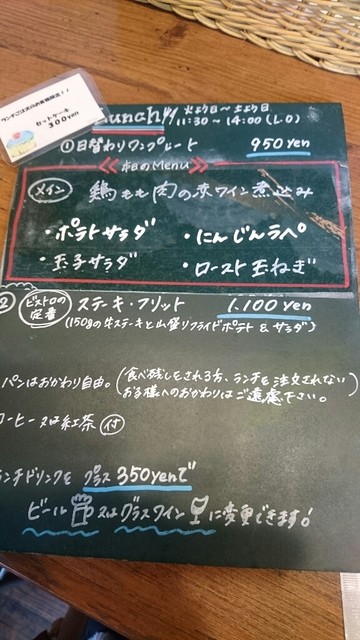 セットケーキ
300yen
Lunch 火よう日～土よう日
11:30～14:00(L.O)
①日替わりワンプレート 950yen
本日のMenu
メイン 鶏もも肉の赤ワイン煮込み
・ポテトサラダ ・にんじんラペ
・玉子サラダ ・ロースト玉ねぎ
② ビストロの定番 ステーキ・フリット 1.100yen
(150gの牛ステーキと山盛りフライドポテト&サラダ)
パンはおかわり自由。(食べ残しをされる方、ランチを注文されない
お子様へのおかわりはご遠慮下さい。)
コーヒー又は紅茶 付
ランチドリンクを プラス350yenで
ビール 又はグラスワイン に変更できます!